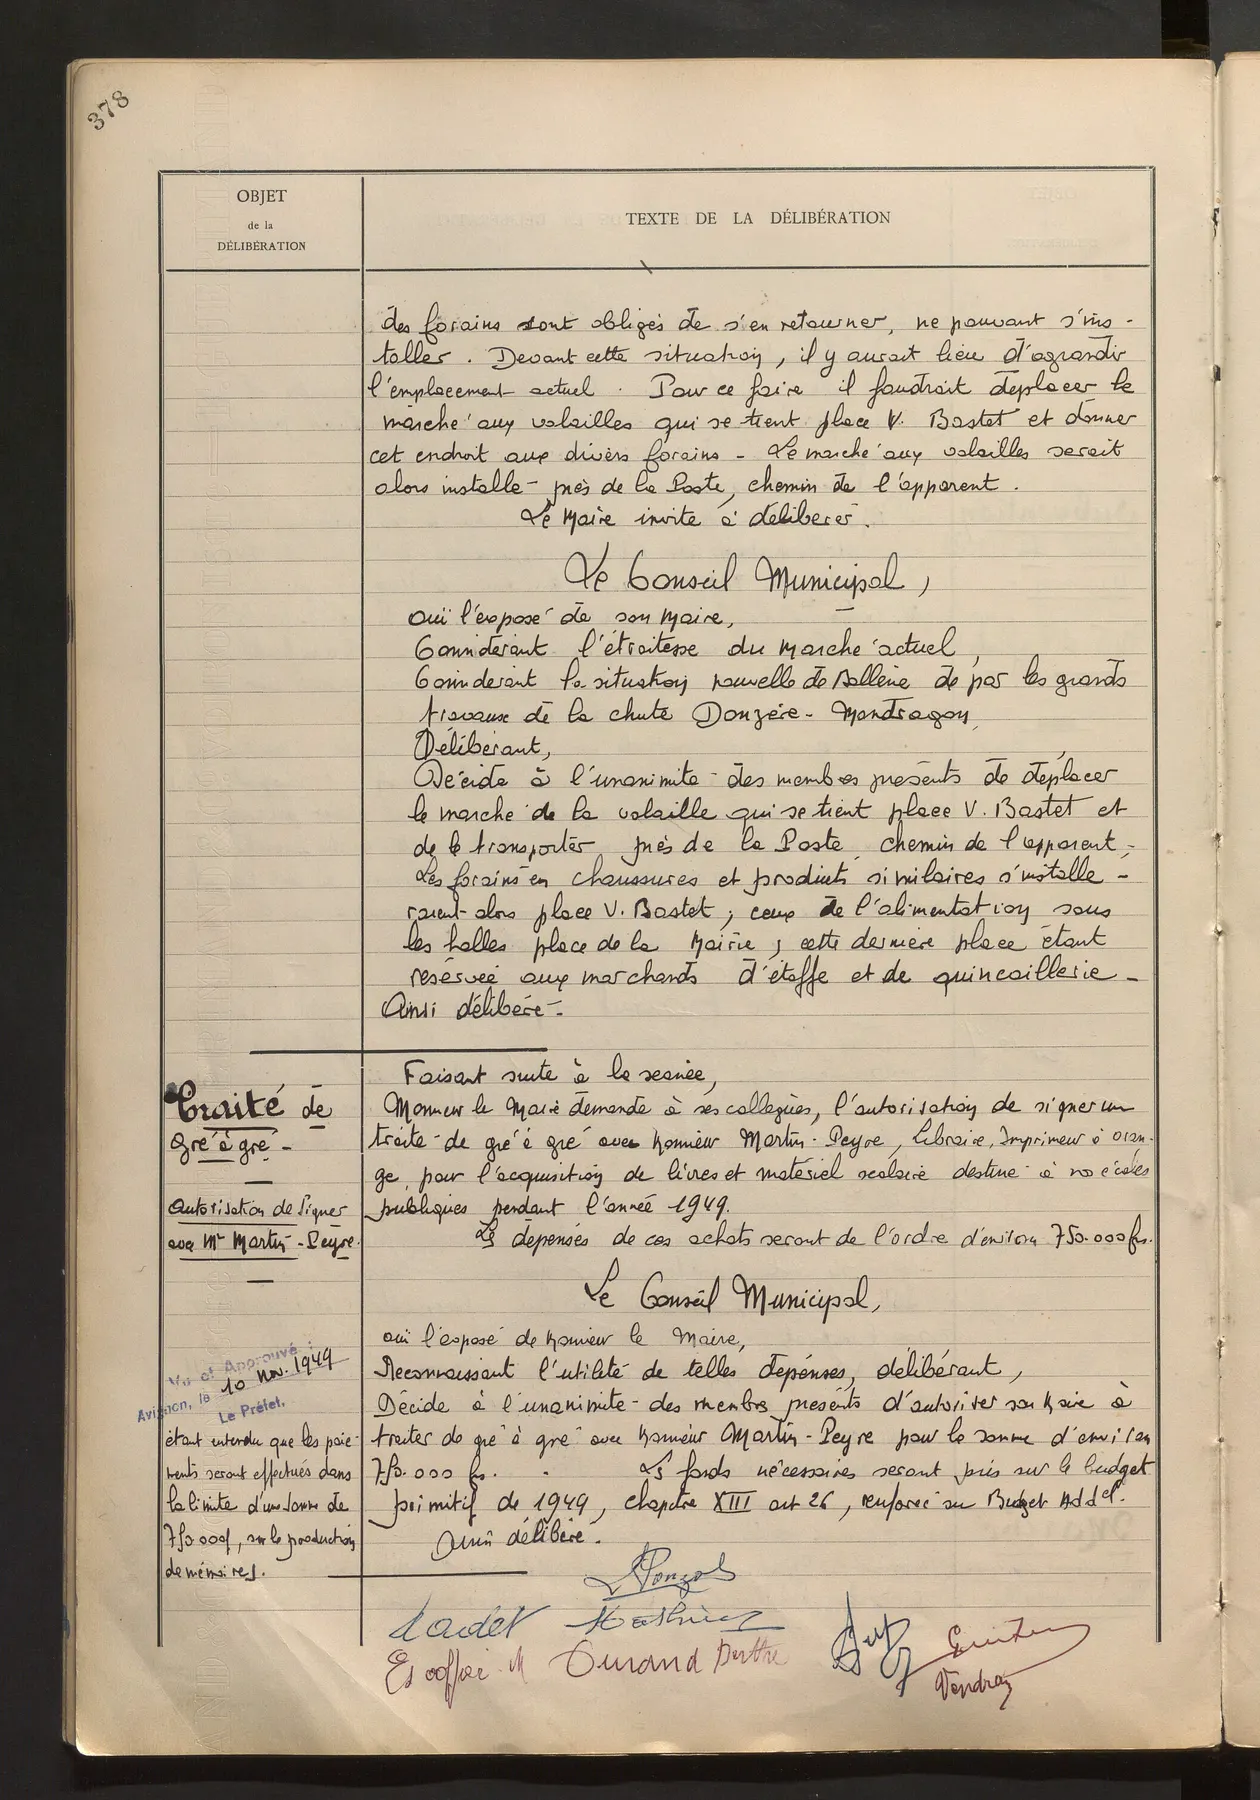 378
OBJET
de la
DÉLIBÉRATION
TEXTE DE LA DÉLIBÉRATION
des forains sont obligés de s'en retourner, ne pouvant s'ins-
taller. Devant cette situation, il y aurait lieu d'agrandir
l'emplacement actuel. Pour ce faire il faudrait déplacer le
marché aux volailles qui se tient place V. Bastet et donner
cet endroit aux divers forains - Le marché aux volailles serait
alors installé près de la Poste, chemin de l'apparent.
Le Maire invite à délibérer.
Le Conseil Municipal,
ouï l'exposé de son Maire,
Considérant l'étroitesse du marché actuel,
Considérant la situation nouvelle de Bollène de par les grands
travaux de la chute Donzère-Mondragon,
Délibérant,
Décide à l'unanimité des membres présents de déplacer
le marché de la volaille qui se tient place V. Bastet et
de le transporter près de la Poste, chemin de l'apparent,
Les forains en chaussures et produits similaires s'installe-
raient alors place V. Bastet, ceux de l'alimentation sous
les halles place de la Mairie, cette dernière place étant
réservée aux marchands d'étoffe et de quincaillerie -
Ainsi délibéré -
Traité de
gré à gré -
Autorisation de signer
avec Mr Martin-Peyre.
Faisant suite à la séance,
Monsieur le Maire demande à ses collègues, l'autorisation de signer un
traité de gré à gré avec Monsieur Martin-Peyre, libraire, Imprimeur à Oran-
ge, pour l'acquisition de livres et matériel scolaire destiné à nos écoles
publiques pendant l'année 1949.
Les dépenses de ces achats seront de l'ordre d'environ 750.000 frs.
Le Conseil Municipal,
ouï l'exposé de Monsieur le Maire,
Reconnaissant l'utilité de telles dépenses, délibérant,
Décide à l'unanimité des membres présents d'autoriser son Maire à
traiter de gré à gré avec Monsieur Martin-Peyre pour la somme d'environ
750.000 frs. Les fonds nécessaires seront pris sur le budget
primitif de 1949, chapitre XIII art 26, renforcé au Budget Addel.
Ainsi délibéré.
Vu et Approuvé :
Avignon, le 10 Nov. 1949
Le Préfet,
étant entendu que les paie-
ments seront effectués dans
la limite d'une somme de
750.000f, sur la production
de mémoires.
Ponzol
Cadet Mathieu
Escoffier M Durand Berthe
Vendran